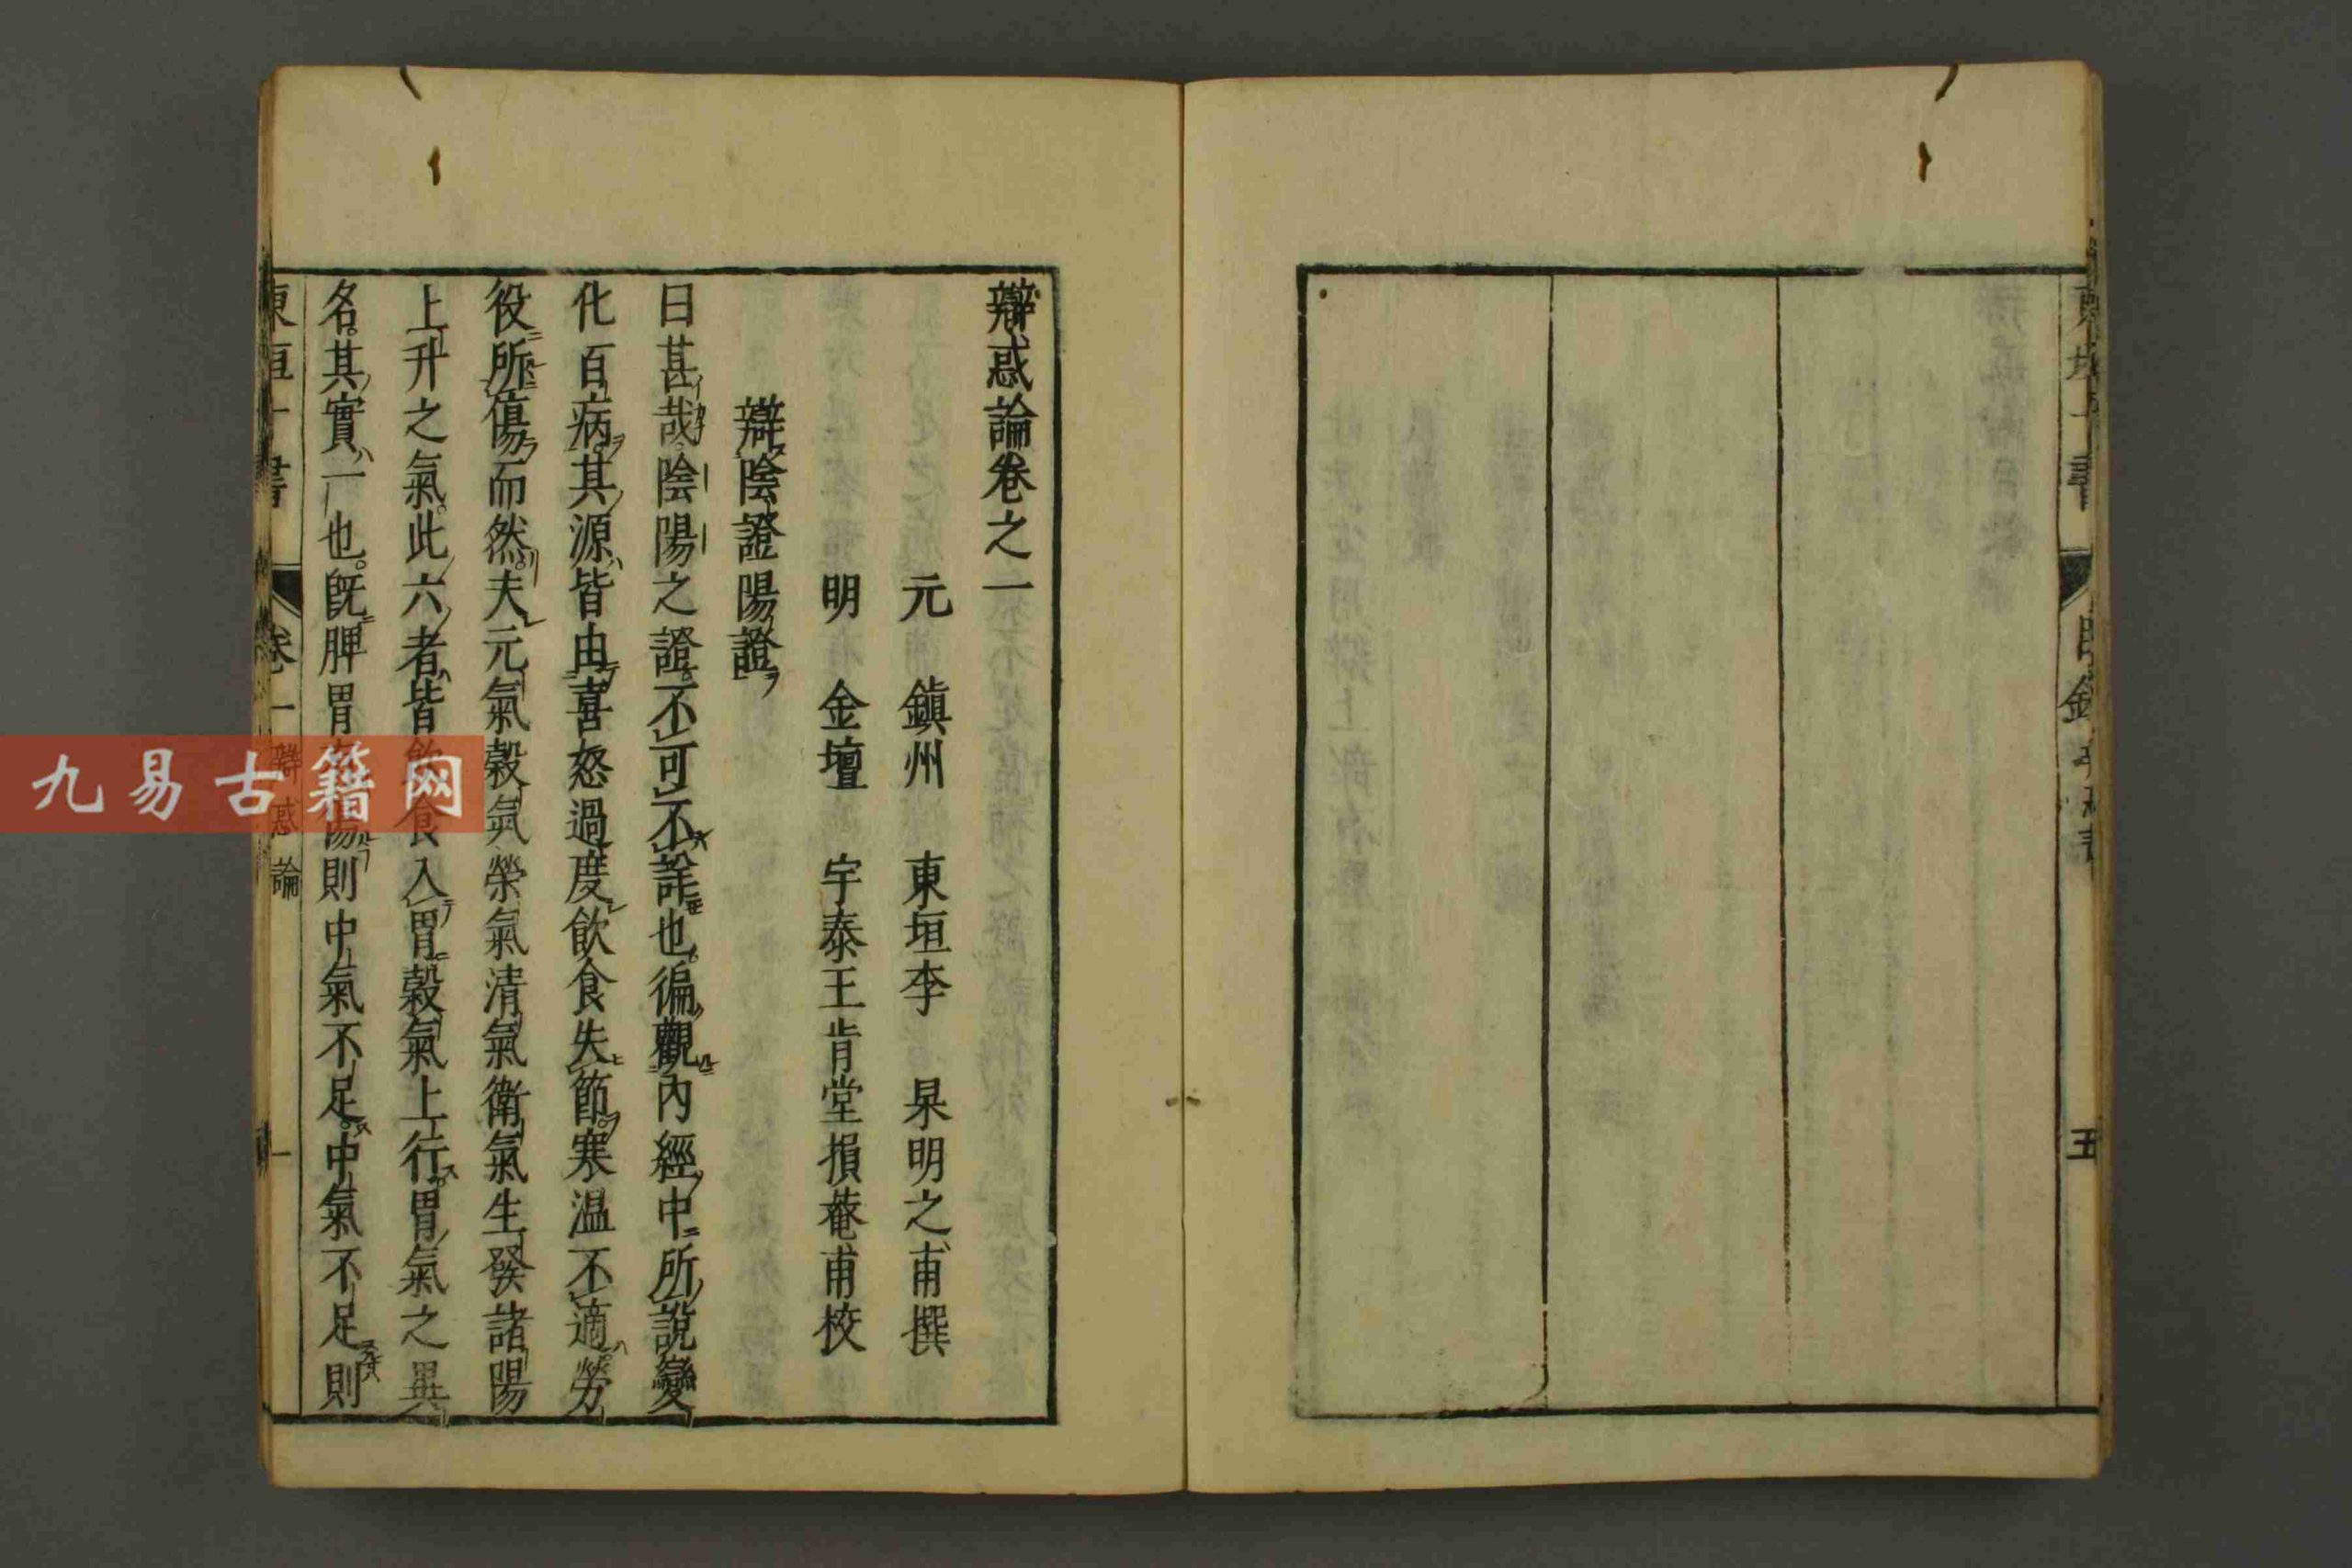 五
辯惑論卷之一
元 鎮州 東垣李 杲明之甫撰
明 金壇 宇泰王肯堂損菴甫校
辯陰證陽證
曰甚哉陰陽之證不可不詳也徧觀內經中所說變
化百病其源皆由喜怒過度飲食失節寒温不適勞
役所傷而然夫元氣穀氣榮氣清氣衛氣生發諸陽
上升之氣此六者皆飲食入胃穀氣上行胃氣之異
名其實一也既脾胃有傷則中氣不足中氣不足則
東垣十書 卷一 辯惑論 一
九易古籍网